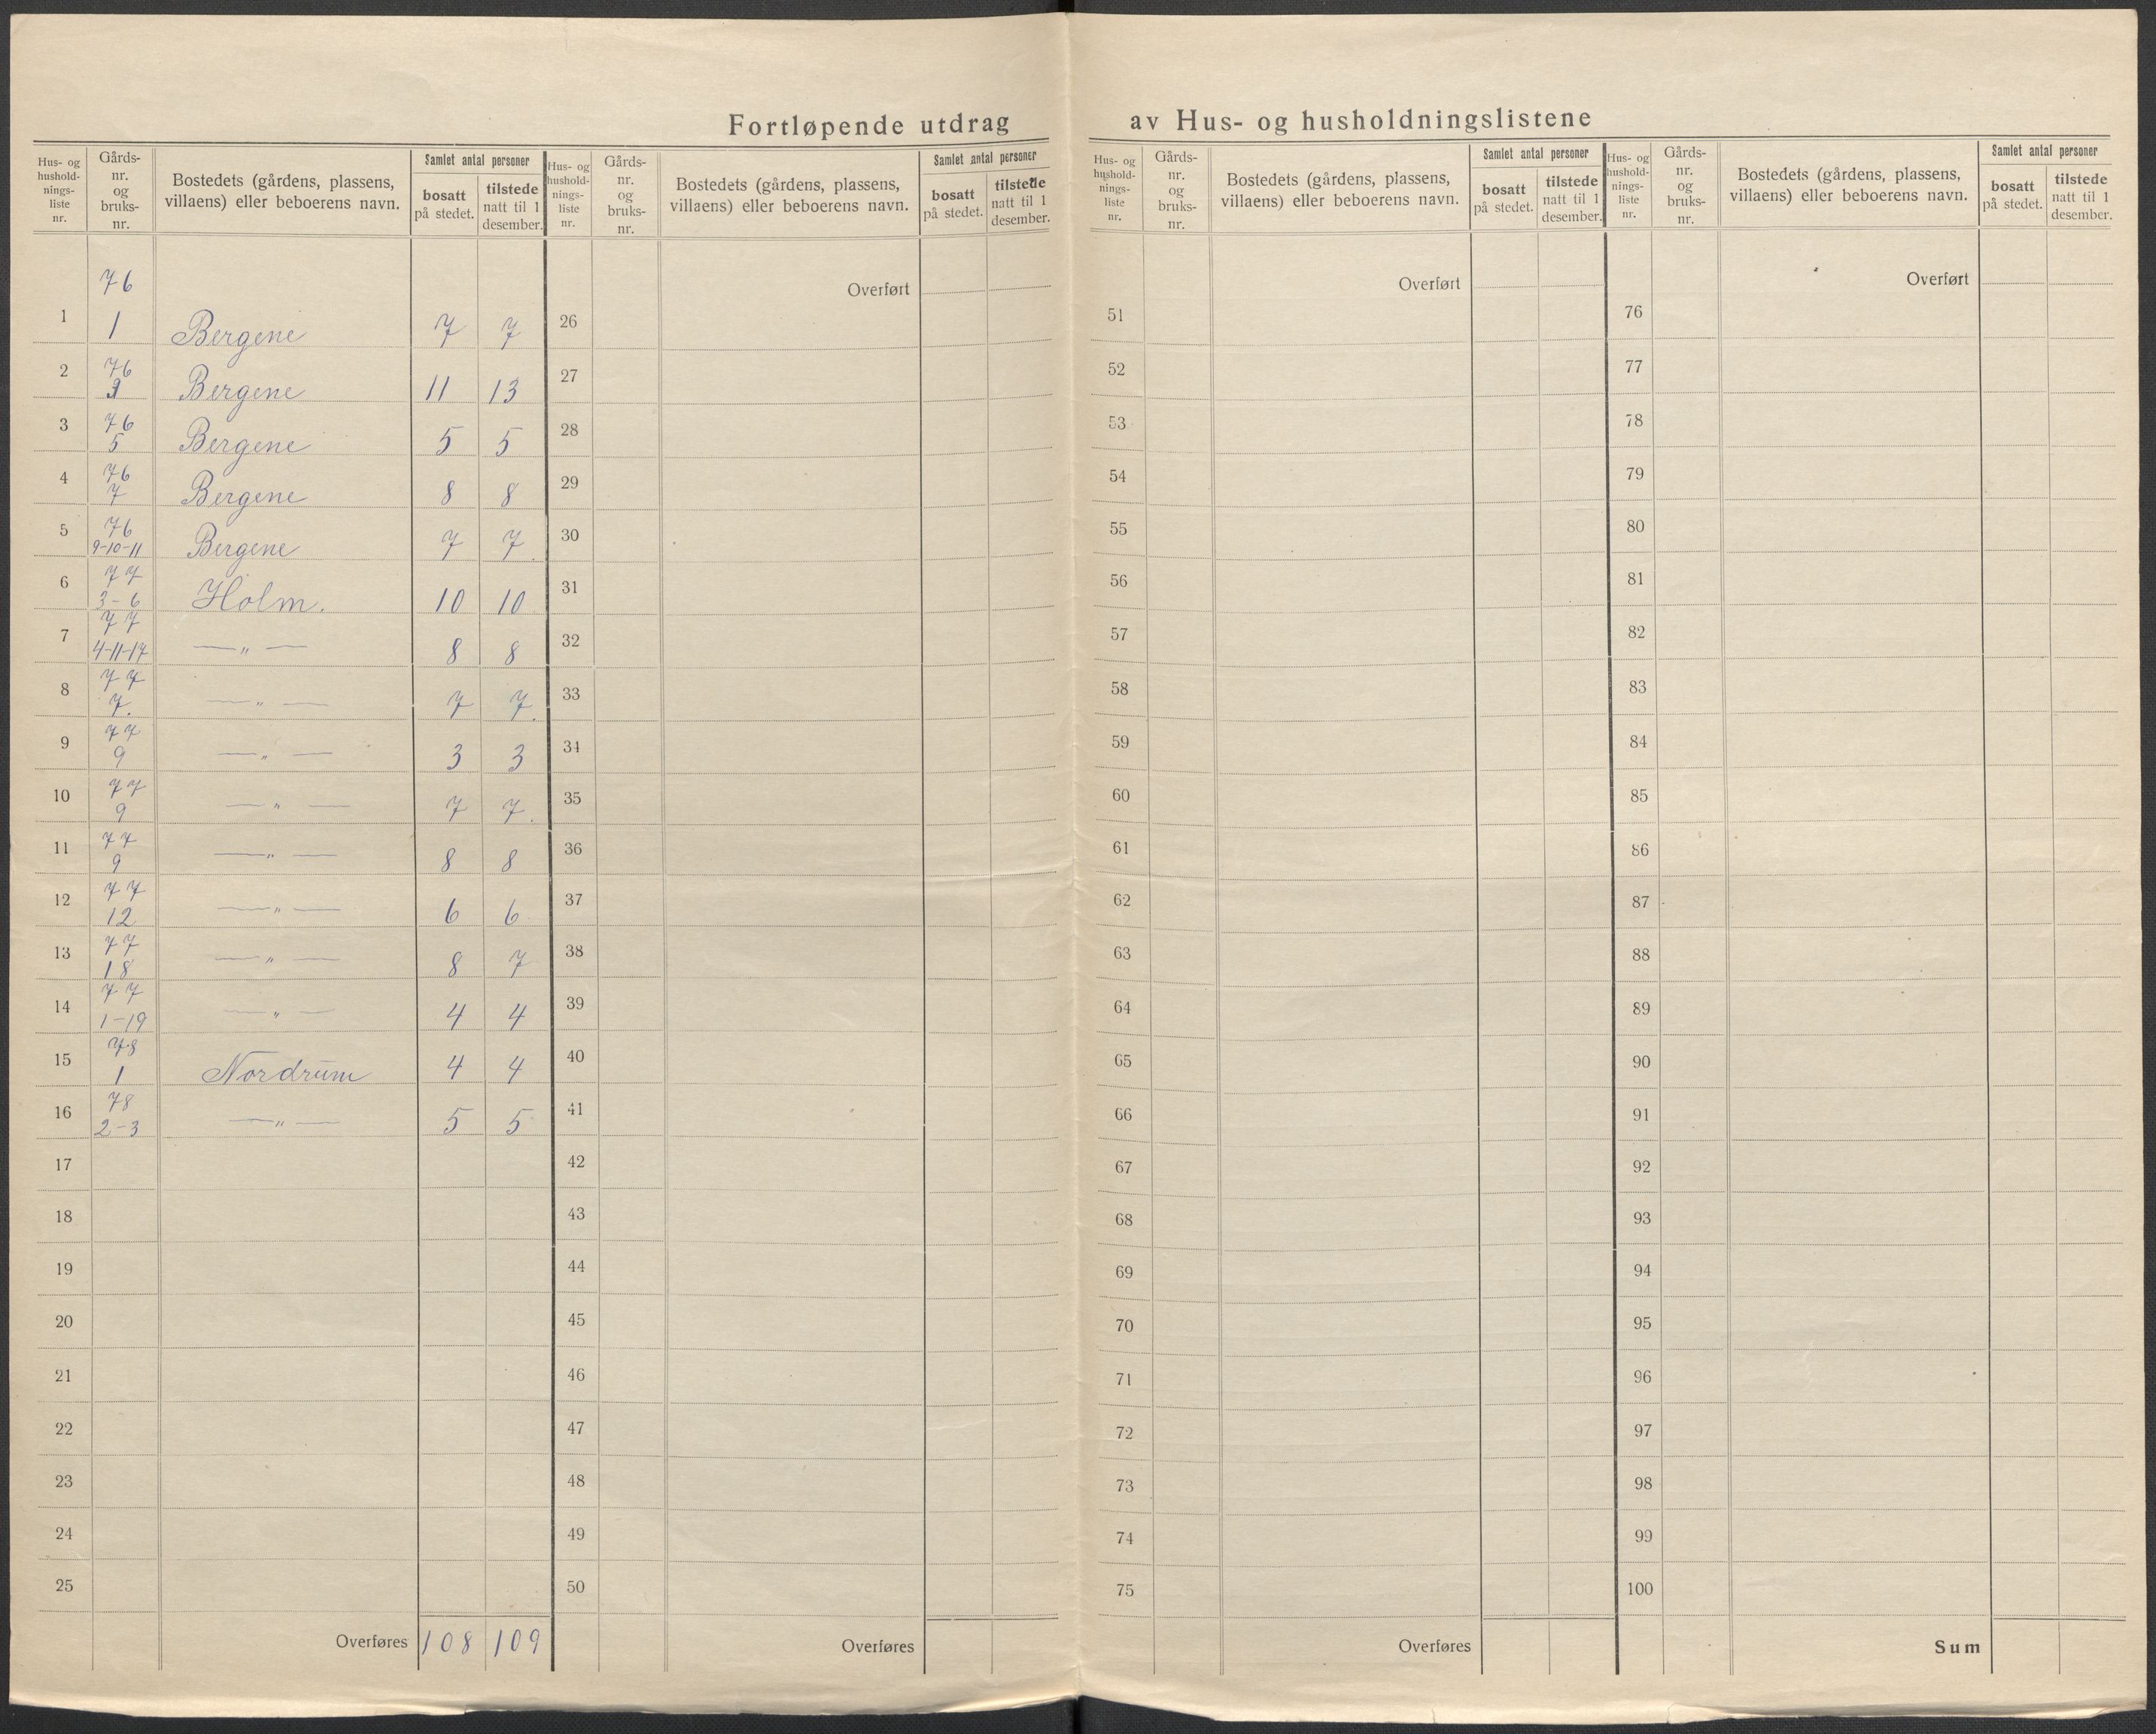 Fortløpende utdrag av Hus- og husholdningslistene
Hus- og hushold- nings- liste nr. | Gårds- nr. og bruks- nr. | Bostedets (gårdens, plassens, villaens) eller beboerens navn. | Samlet antal personer | bosatt på stedet. | tilstede natt til 1 desember.
76
1 | 1 | Bergene | 7 | 7
2 | 76 | Bergene | 11 | 13
3 | 76 5 | Bergene | 5 | 5
4 | 76 7 | Bergene | 8 | 8
5 | 76 9-10-11 | Bergene | 7 | 7.
6 | 77 3-6 | Holm. | 10 | 10
7 | 77 4-11-17 | —"— | 8 | 8
8 | 77 7. | —"— | 7 | 7.
9 | 77 9 | —"— | 3 | 3
10 | 77 9 | —"— | 7 | 7.
11 | 77 9 | —"— | 8 | 8
12 | 77 12 | —"— | 6 | 6
13 | 77 18 | —"— | 8 | 7
14 | 77 1-19 | —"— | 4 | 4
15 | 78 1 | Nordrum | 4 | 4
16 | 78 2-3 | —"— | 5 | 5
17
18
19
20
21
22
23
24
25
Overføres 108 109
Hus- og hushold- nings- liste nr. | Gårds- nr. og bruks- nr. | Bostedets (gårdens, plassens, villaens) eller beboerens navn. | Samlet antal personer | bosatt på stedet. | tilstede natt til 1 desember.
Overført
26
27
28
29
30
31
32
33
34
35
36
37
38
39
40
41
42
43
44
45
46
47
48
49
50
Overføres
Hus- og hushold- nings- liste nr. | Gårds- nr. og bruks- nr. | Bostedets (gårdens, plassens, villaens) eller beboerens navn. | Samlet antal personer | bosatt på stedet. | tilstede natt til 1 desember.
Overført
51
52
53
54
55
56
57
58
59
60
61
62
63
64
65
66
67
68
69
70
71
72
73
74
75
Overføres
Hus- og hushold- nings- liste nr. | Gårds- nr. og bruks- nr. | Bostedets (gårdens, plassens, villaens) eller beboerens navn. | Samlet antal personer | bosatt på stedet. | tilstede natt til 1 desember.
Overført
76
77
78
79
80
81
82
83
84
85
86
87
88
89
90
91
92
93
94
95
96
97
98
99
100
Sum